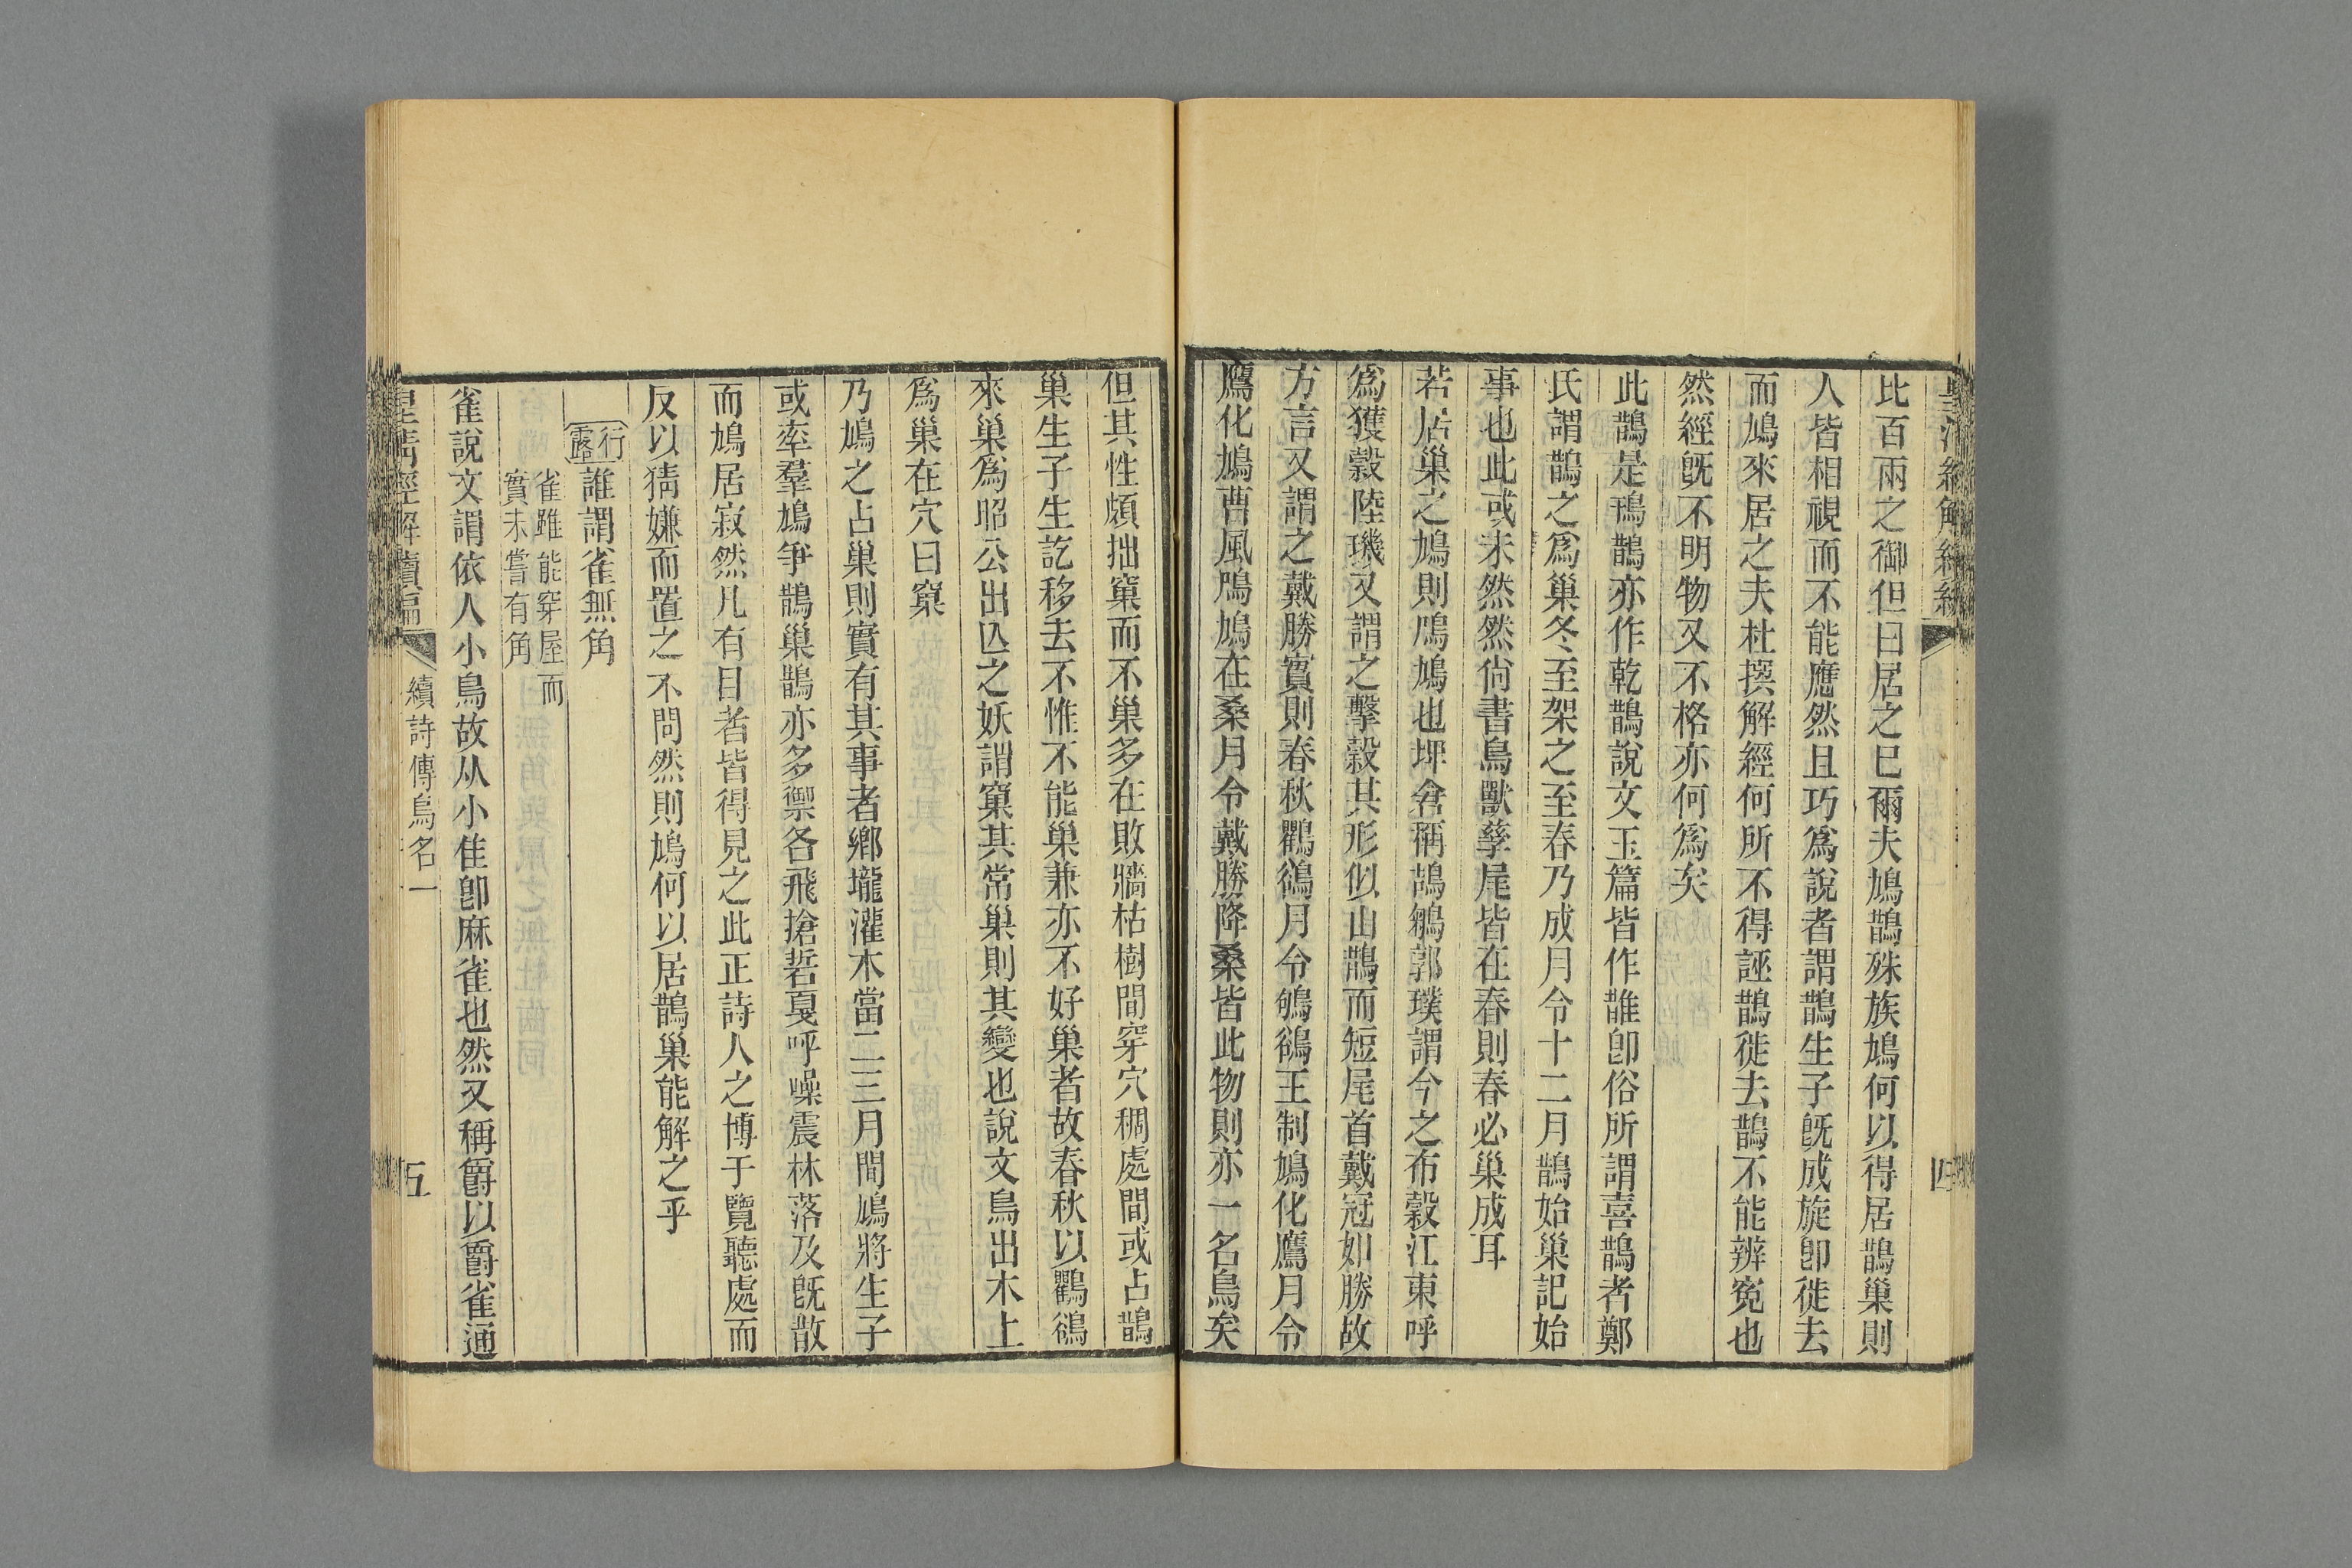 比百兩之御但曰居之巳爾夫鳩鵲殊族鳩何以得居鵲巢則
人皆相視而不能應然且巧爲說者謂鵲生子旣成旋卽徙去
而鳩來居之夫杜撰解經何所不得誣鵲徙去鵲不能辨冤也
然經旣不明物又不格亦何爲矣
此鵲是鳱鵲亦作乾鵲說文玉篇皆作誰卽俗所謂喜鵲者鄭
氏謂鵲之爲巢冬至架之至春乃成月令十二月鵲始巢記始
事也此或未然然尙書鳥獸孳尾皆在春則春必巢成耳
若居巢之鳩則鳲鳩也埤倉稱鴶鵴郭璞謂今之布穀江東呼
爲獲穀陸璣又謂之擊穀其形似山鵲而短尾首戴冠如勝故
方言又謂之戴勝實則春秋鸜鵒月令鴝鵒王制鳩化鷹月令
鷹化鳩曹風鳲鳩在桑月令戴勝降桑皆此物則亦一名鳥矣
四
但其性頗拙窠而不巢多在敗牆枯樹間穿穴稠處間或占鵲
巢生子生訖移去不惟不能巢兼亦不好巢者故春秋以鸜鵒
來巢爲昭公出亾之妖謂窠其常巢則其變也說文鳥出木上
爲巢在穴曰窠
乃鳩之占巢則實有其事者鄉壠灌木當二三月間鳩將生子
或率羣鳩爭鵲巢鵲亦多禦各飛搶硩戛呼噪震林落及旣散
而鳩居寂然凡有目者皆得見之此正詩人之博于覽聽處而
反以猜嫌而置之不問然則鳩何以居鵲巢能解之乎
行露 誰謂雀無角
雀雖能穿屋而
實未嘗有角
雀說文謂依人小鳥故从小隹卽麻雀也然又稱爵以爵雀通
皇淸經解續編
續詩傳鳥名一
五